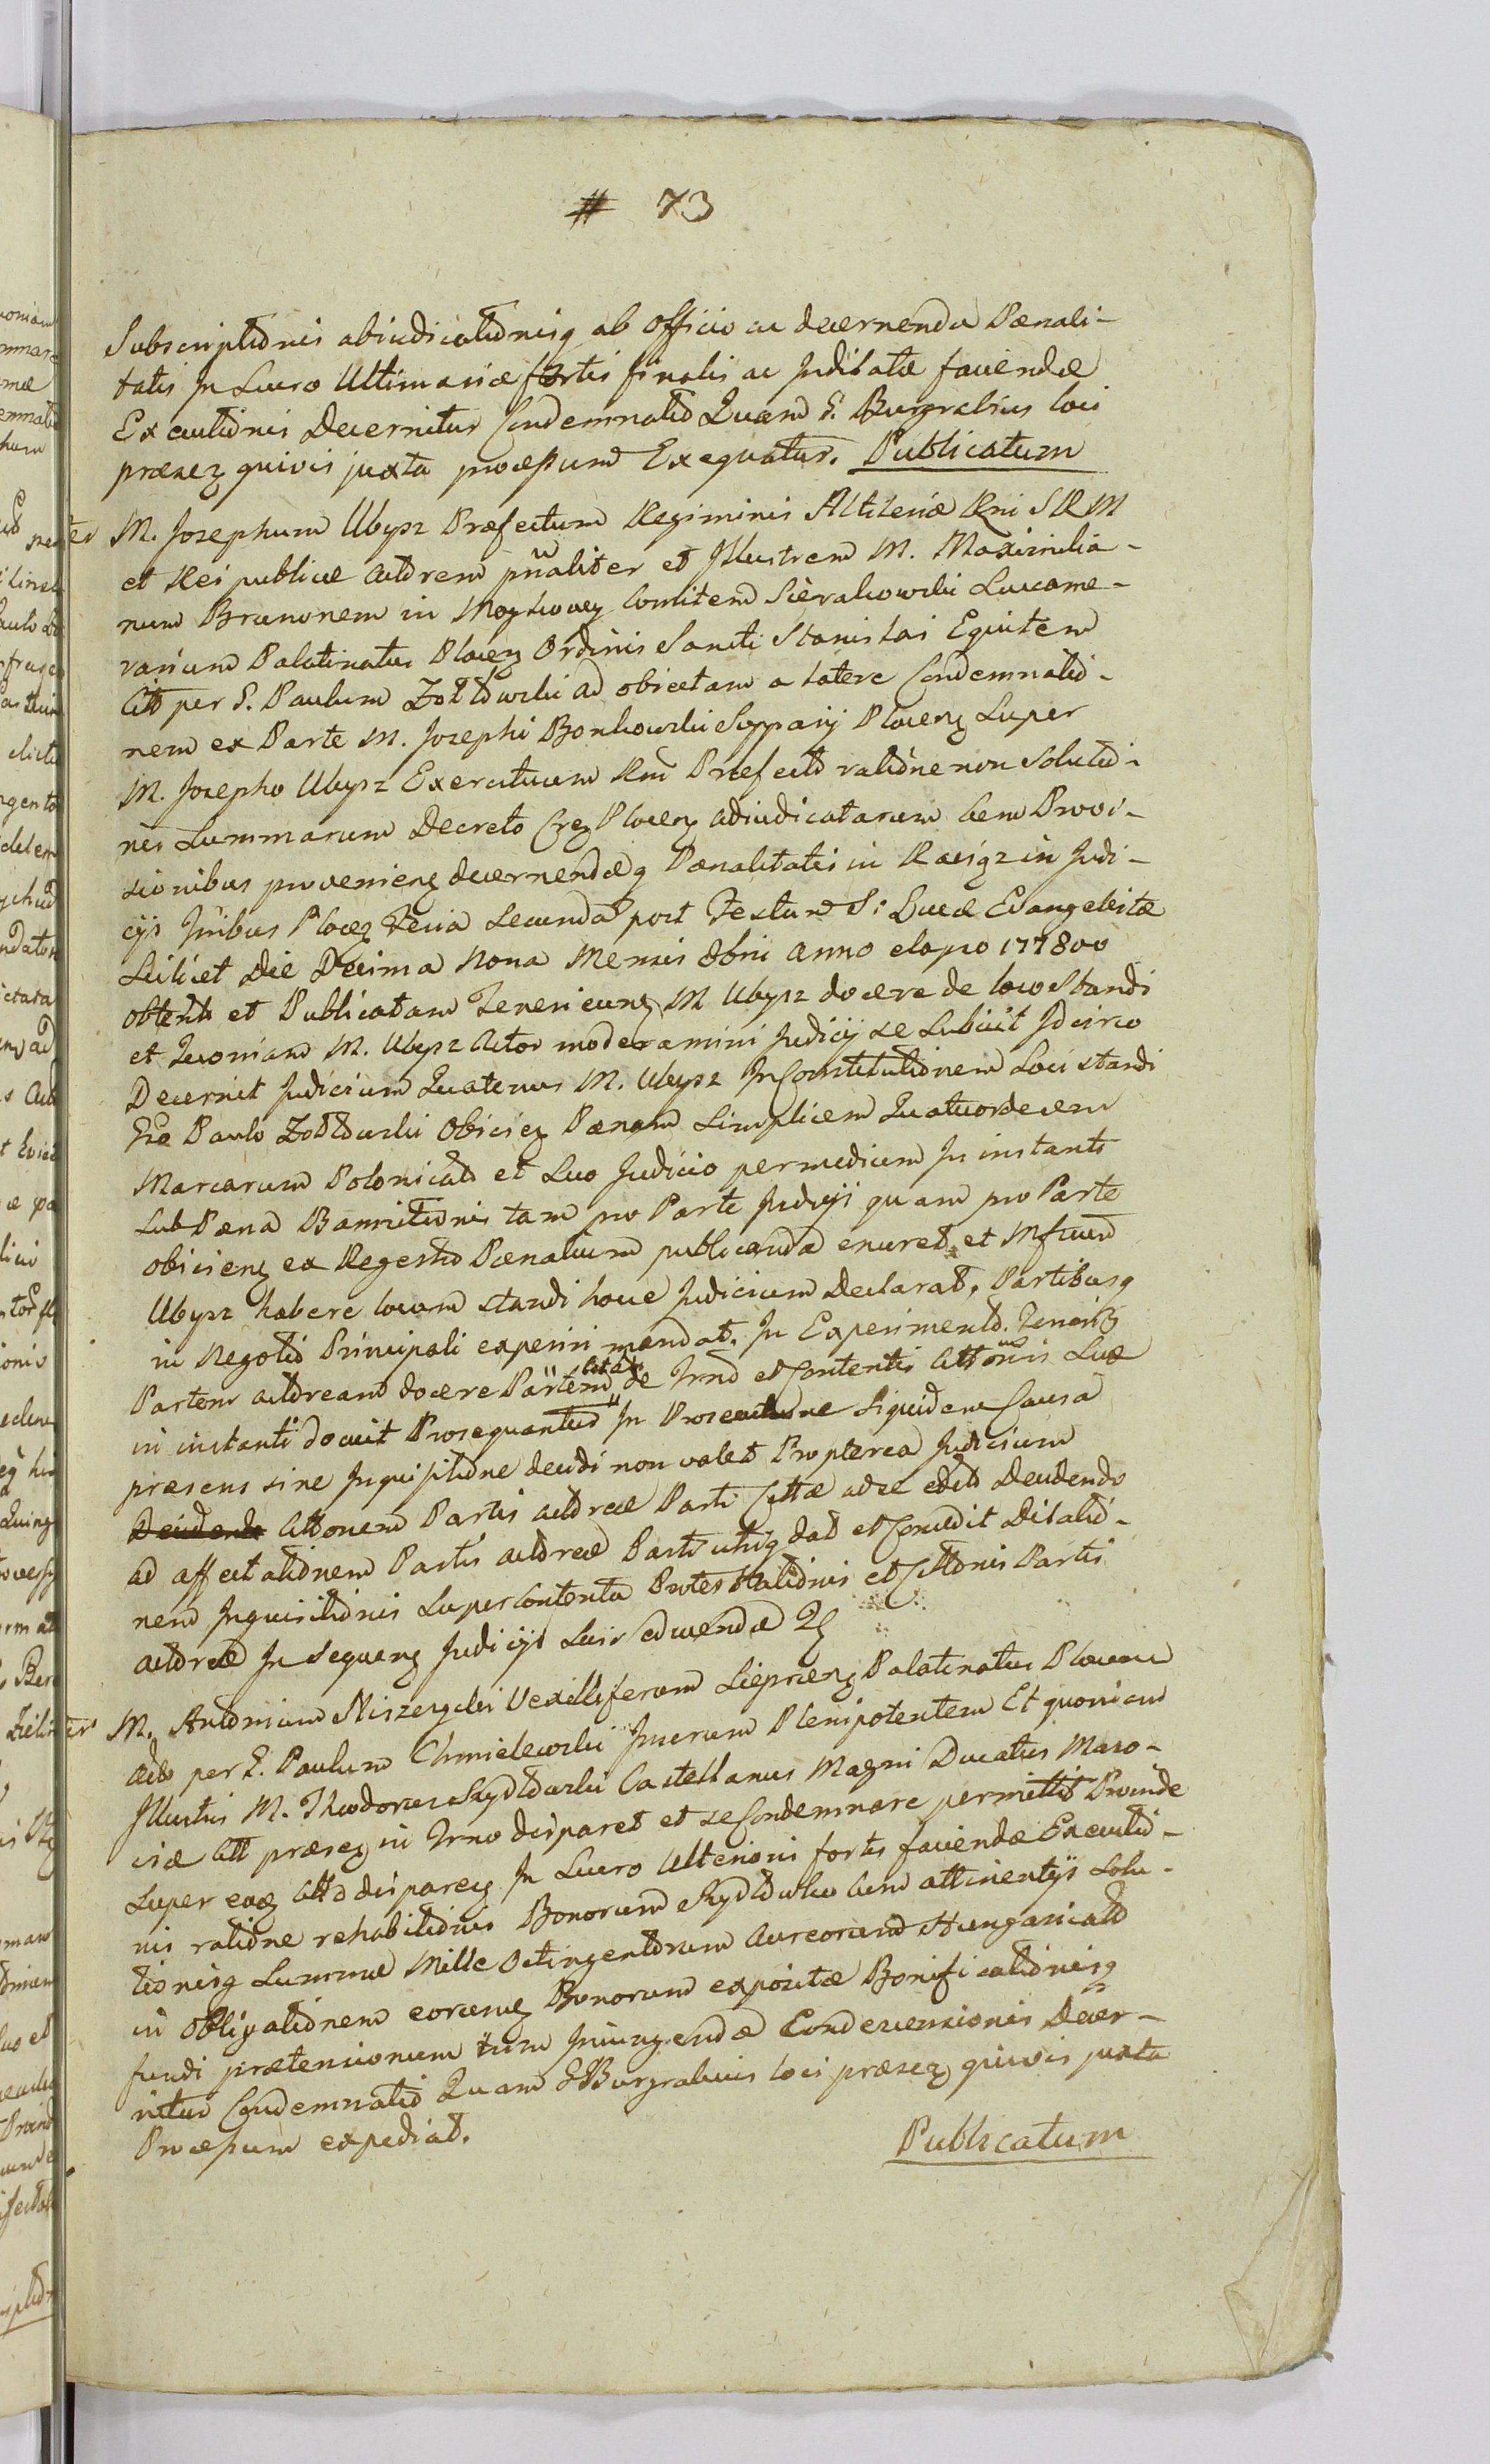 # 73
Subscriptionis abiudicationisq ab officio ac decernenda Pœnali-
talis In Lucro Ultimariæ fortis finalis ac Inditatæ faciendæ
Executionis Decernitur Condemnatio Quam G. Burgrabius loci
præsez quivis juxta processum Exequatur. Publicatum
M. Josephum Ubysz Præfectum Regiminis Altileriæ Rni S R M
et Rei publicæ actorem pnaliter et Illustrem M. Maximilia-
num Brunonem in comitem Sierakowski Succame-
rarium Palatinatus Plocen Ordinis Sancti Stanislai Equitem
Citt per G. Paulum Zołtowski ad obiectam a latere Condemnatio-
nem ex Parte M. Josephi Bonkowski Plocenz Super
M. Josepho Ubysz Exercituum Rni Præfecto ratione non Solutio-
nis Summarum Decreto Plocenz adiudicatarum cum Provi-
sionibus provenienz decernendæq Pœnalitatis in Raciąz in Judi-
cijs Plocen Feria Secunda post Festum S: Lucæ Evangelistæ
Scilicet Die Decima Nona Mensis 8bris Anno elapso 177800
obtent et Publicatam M Ubysz docere de loco Standi
et Quoniam M. Ubysz Actor moderamini Judicij se Subiicit Idcirco
Decernit Judicium Quatenus M. Ubysz In Constitutionem Loci standi
Gso Paulo Zołtowski Obiicien Pœnam Simplicem Quatuordecem
Marcarum Polonicalo et Suo Judicio permedium In instanti
Sub Pœna Bannitionis tam pro Parte Judicij quam pro Parte
obiicienz ex Regestro Pœnalium publicanda enumeret et
Ubysz habere locum standi hocce Judicium Declarat, Partibusq
in Negotio Principali experiri mandat. In Experimento.
Partem actoream docere Partem Citatam de Trno et Contentis Attonis Suæ
in instanti docuit Prosequantur In Prosecutione Siquidem Causa
præsens sine Inquisitione decidi non valet Propterea Judicium
Decidendo Attonem Partis actoreæ Parti Cittæ ad se edito Decidendo
ad affectationem Partis actoreæ Parti utriq dat et Concedit Dilatio-
nem Inquisitionis Super Contenta Protestationis et Cittonis Partis
actoreæ In Sequenz Judicijs Suis educenda
M. Antonium Niszczycki Vexilliferum Palatinatus
acto per G. Paulum Chmielewski Plenipotentem Et quoniam
Illustris M. Theodorus Szydłowski Castellanus Magni Ducatus Maso-
viæ Citt præsez in Trno disparet et se Condemnare permittit Proinde
Super eoq Citto disparez In Lucro Ulterioris fortis faciendæ Executio-
nis ratione rehabitionis Bonorum Szydłowo cum attinentijs Solu-
tionisq Summæ Mille Octingentorum Aureorum Hungaricalo
in obligationem eorumq Bonorum expositæ Bonificationisq
fundi prætensionum tum Iniungendæ Condescensionis Decer-
nitur Condemnatio Quam G Burgrabius loci præsez quivis juxta
Processum expediat.
Publicatum